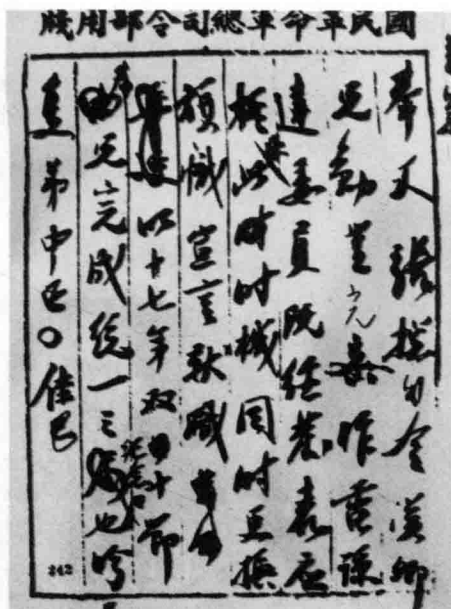 國民革命軍總司令部用牋
奉天張總司令漢卿
兄勳鑒昨電諒
達委員既經發表應
乘此時時機同時更換
旗幟宣言就職
以十七年双十節
為兄完成統一之紀念日也盼
弟中正〇佳巳
242